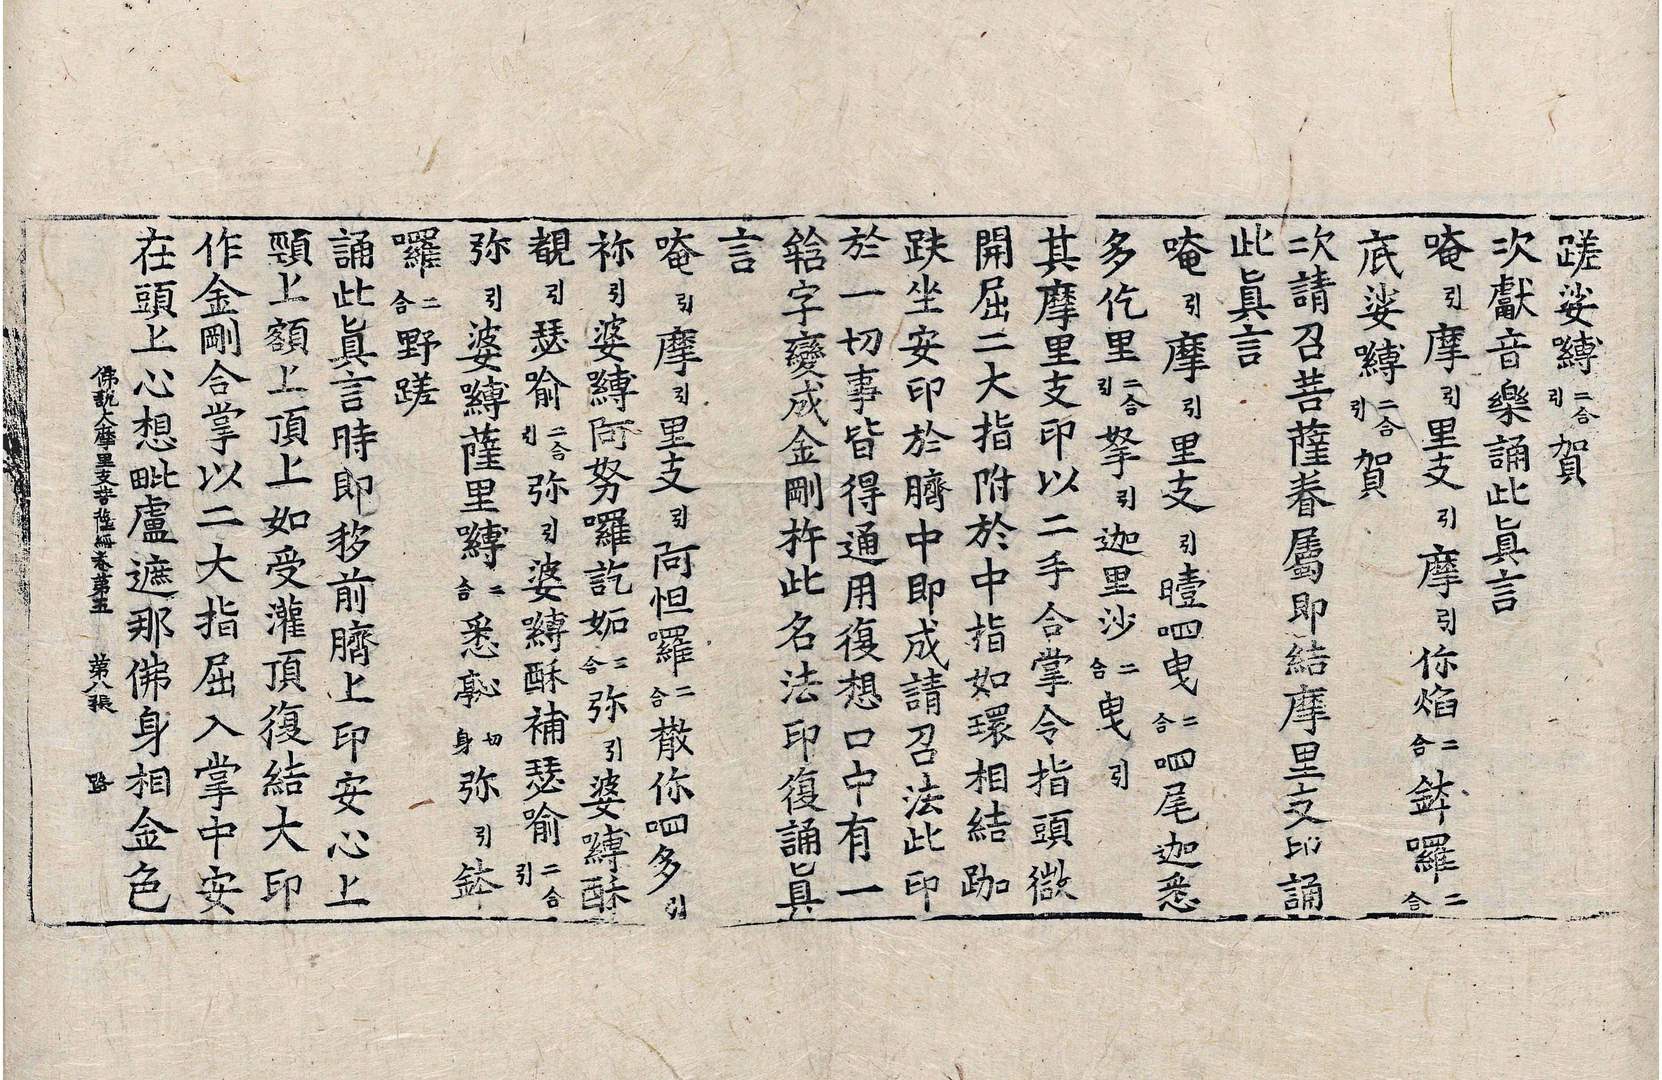 蹉娑嚩二合引賀
次獻音樂誦此眞言
唵引摩引里支引摩引你焰二合鉢囉二合
底娑嚩二合引賀
次請召菩薩眷屬即結摩里支印誦
此眞言
唵引摩引里支引曀呬曳二合呬尾迦悉
多仡里二合引拏引迦里沙二合曳引
其摩里支印以二手合掌令指頭微
開屈二大指附於中指如環相結跏
趺坐安印於臍中即成請召法此印
於一切事皆得通用復想口中有一
𤚥字變成金剛杵此名法印復誦眞
言
唵引摩引里支引阿怛囉二合散你呬多引
祢引婆嚩阿努囉訖妬二合弥引婆嚩酥
覩引瑟喻二合引弥引婆嚩酥補瑟喻二合引
弥引婆嚩薩里嚩二合悉𠷈切身弥引鉢
囉二合野蹉
誦此眞言時即移前臍上印安心上
頸上額上頂上如受灌頂復結大印
作金剛合掌以二大指屈入掌中安
在頭上心想毗盧遮那佛身相金色
佛說大摩里支菩薩經卷第五 第八張 路